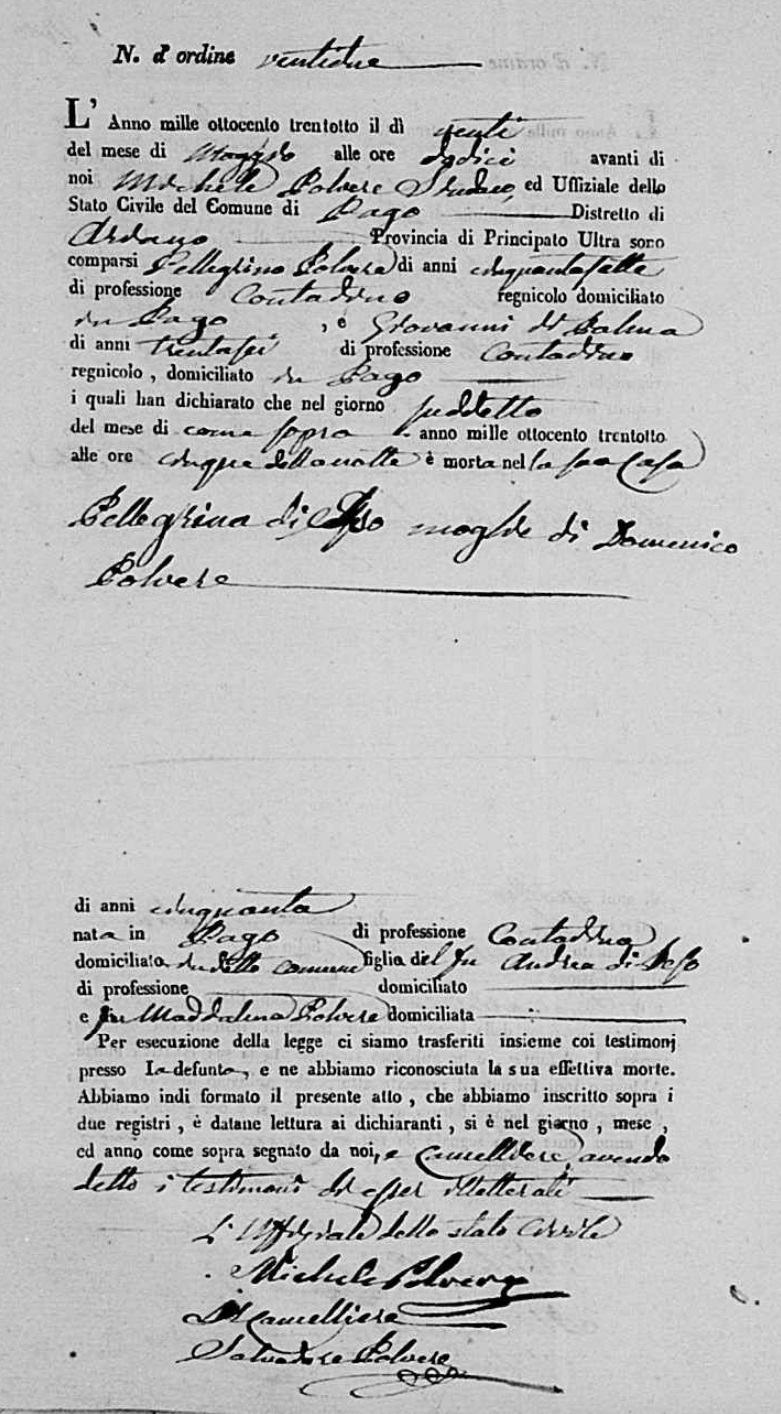 N. d'ordine ventidue
L' Anno mille ottocento trentotto il dì venti
del mese di Maggio alle ore dodici avanti di
noi Michele Polvere Sindaco, ed Uffiziale dello
Stato Civile del Comune di Pago Distretto di
Ariano Provincia di Principato Ultra sono
comparsi Pellegrino Polvere di anni cinquantasette
di professione Contadino regnicolo domiciliato
in Pago , e Giovanni di Palma
di anni trentasei di professione Contadino
regnicolo , domiciliato in Pago
i quali han dichiarato che nel giorno suddetto
del mese di come sopra anno mille ottocento trentotto
alle ore cinque della notte è morta nella sua Casa
Pellegrina di moglie di Domenico
Polvere
di anni cinquanta
nata in Pago di professione Contadina
domiciliata in detto comune figlia del fu Andrea di
di professione domiciliato
e fu Maddalena Polvere domiciliata
Per esecuzione della legge ci siamo trasferiti insieme coi testimonj
presso la defunta, e ne abbiamo riconosciuta la sua effettiva morte.
Abbiamo indi formato il presente atto , che abbiamo inscritto sopra i
due registri , è datane lettura ai dichiaranti , si è nel giorno , mese ,
ed anno come sopra segnato da noi, e Cancelliere, avendo
detto i testimoni di esser illetterati
L'Uffiziale dello stato Civile
Michele Polvere
Il Cancelliere
Salvadore Polvere